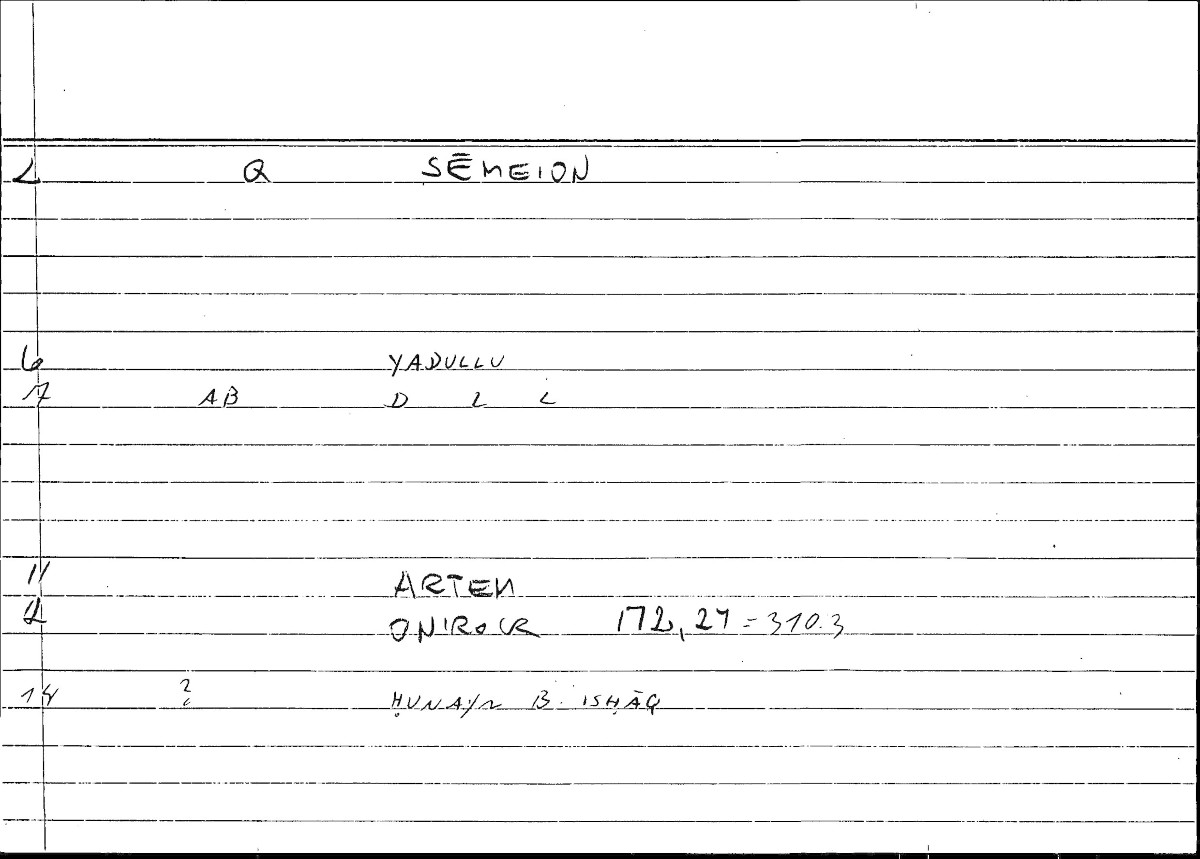 2 Q SĒMEION
6 YADULLU
7 AB D L L
11 ARTEM
12 ONIROCR 172,27 = 310.3
14 ? ḤUNAYN B. ISḤĀQ